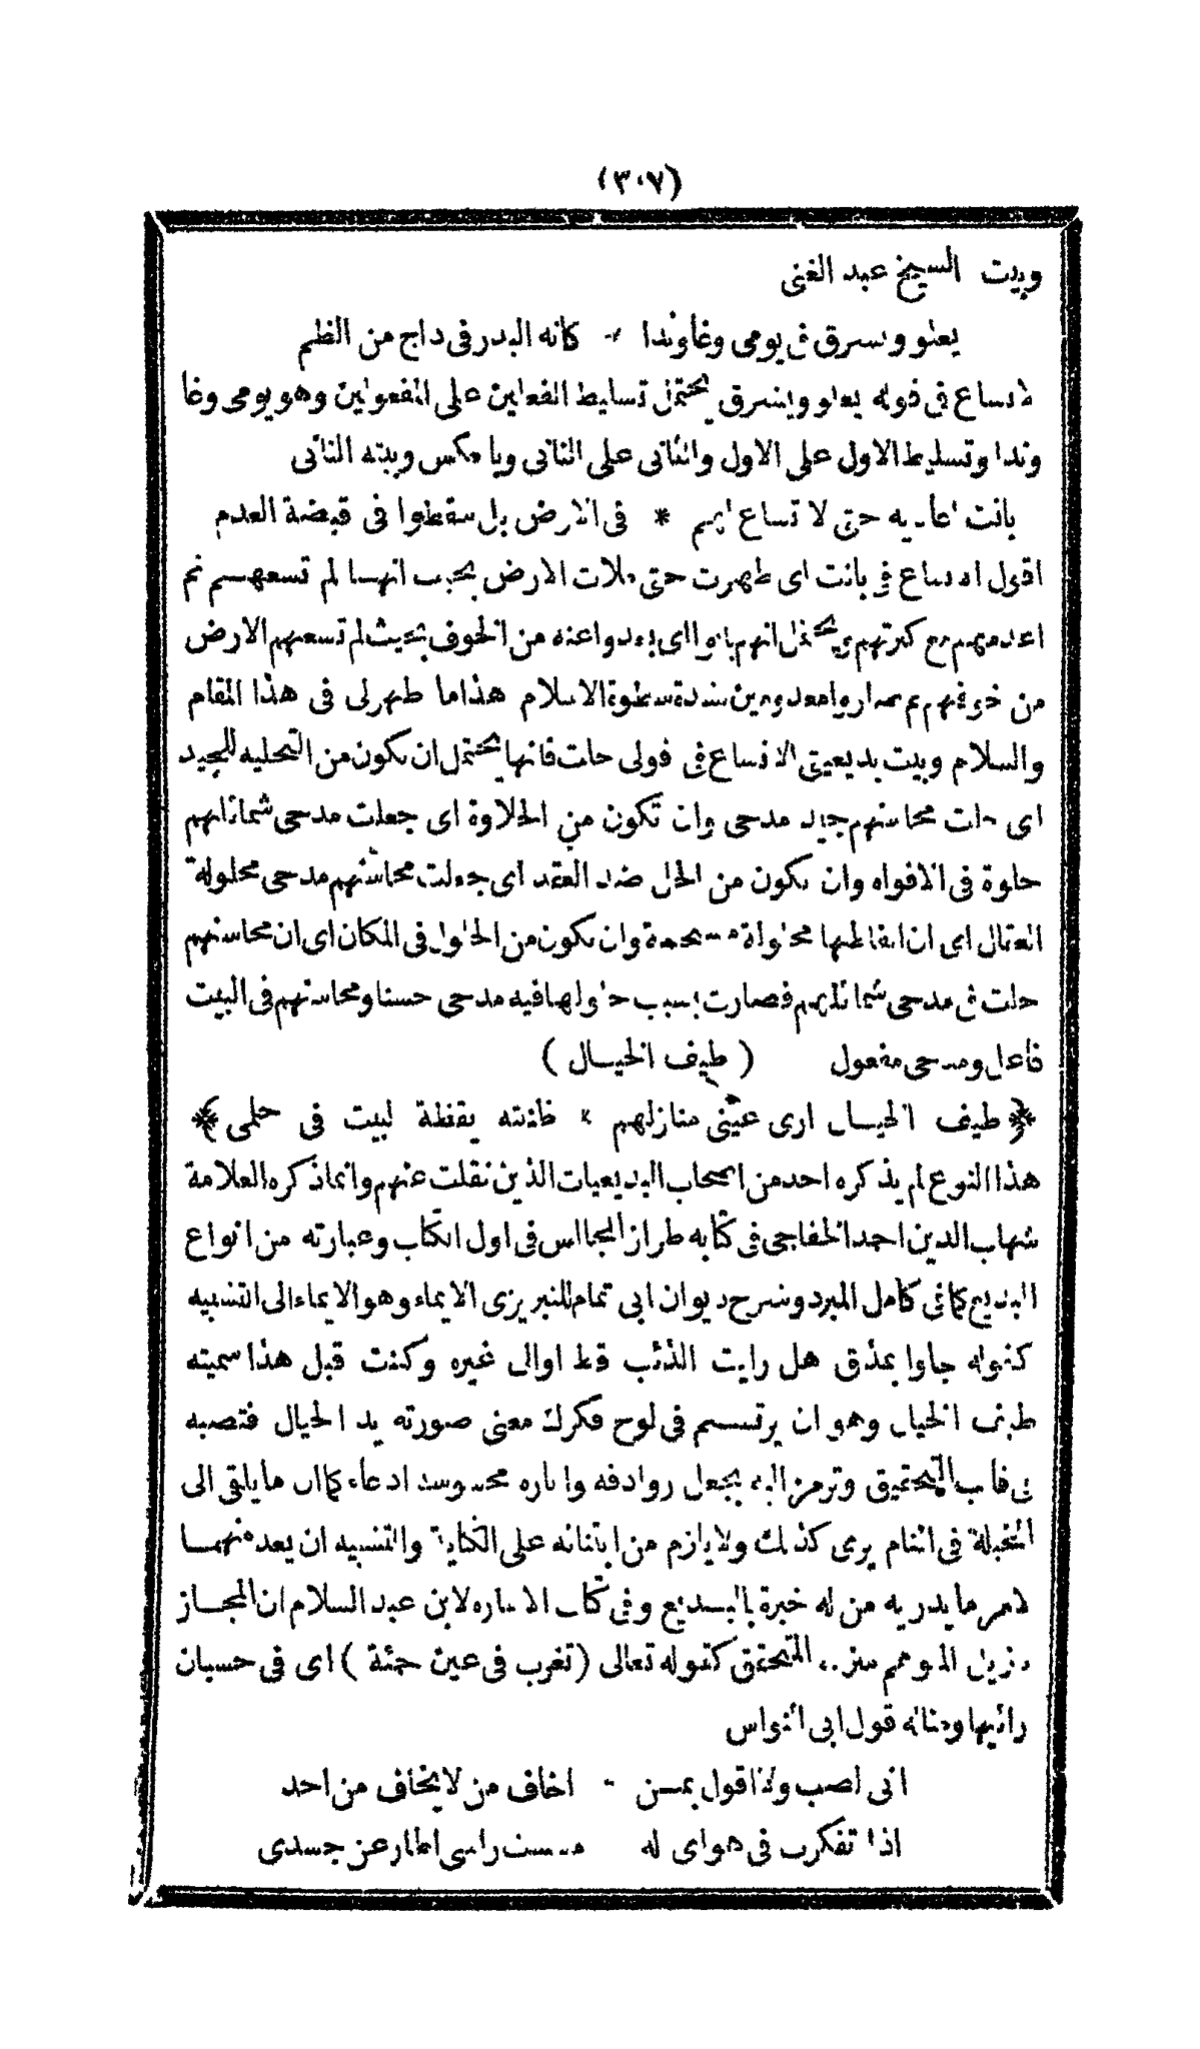 (٣٠٧)
وبيت الشيخ عبد الغنى
يعلو ويشرق فى يومى وغا وندا * كانه البدر فى داج من الظلم
الاتساع فى قوله يعلو ويشرق يحتمل تسليط الفعلين على المفعولين وهو يومى وغا
وندا وتسليط الاول على الاول والثانى على الثانى وبالعكس وبيته الثانى
بانت اعاديه حتى لا تساع لهم * فى الارض بل سقطوا فى قبضة العدم
اقول الاتساع فى بانت اى ظهرت حتى ملات الارض بحيث انهـا لم تسعهـم ثم
اعدمهم مع كثرتهم ويحتمل انهم بانوا اى بعدوا عنه من الخوف بحيث لم تسعهم الارض
من خوفهم ثم صاروا معدومين بشدة سطوة الاسلام هذا ما ظهر لى فى هذا المقام
والسلام وبيت بديعيتى الاتساع فى قولى حلت فانها يحتمل ان تكون من التحليه للجيد
اى حلت محاسنهم جيد مدحى وان تكون من الحلاوة اى جعلت مدحى شمائلهم
حلوة فى الافواه وان تكون من الحل ضد العقد اى جعلت محاسنهم مدحى محلولة
العقال اى ان الفاظها محلولة منسجمة وان تكون من الحلول فى المكان اى ان محاسنهم
حلت فى مدحى شمائلهم فصارت بسبب حلولها فيه مدحى حسنا ومحاسنهم فى البيت
فاعل ومدحى مفعول ( طيف الخيـال )
﴿ طيف الخيـال ارى عينى منازلهم * ظننته يقظة لبيت فى حلمى ﴾
هذا النوع لم يذكره احد من اصحاب البديعيات الذين نقلت عنهم وانما ذكره العلامة
شهاب الدين احمد الخفاجى فى كتابه طراز المجالس فى اول الكتاب وعبارته من انواع
البديع كما فى كامل المبرد وشرح ديوان ابى تمام للتبريزى الايماء وهو الايماء الى التشبيه
كقوله جاوا بمذق هل رايت الذئب قط او الى غيره وكنت قبل هذا سميته
طيف الخيال وهو ان يرتسـم فى لوح فكرك معنى صورته يد الخيال فتصبه
فى قالب التحقيق وترمز اليه بجعل روادفه واثاره محسوسة ادعاء كما ان ما يلقى الى
المخيلة فى المنام يرى كذلك ولا يلزم من ابتنائه على الكناية والتشبيه ان يعد منهمـا
لامر ما يدريه من له خبرة بالبـديع وفى كتاب الاشاره لابن عبد السلام ان المجـاز
تنزيل المتوهم منزلة المتحقق كقوله تعالى (تغرب فى عين حمئة ) اى فى حسبان
رائيها ومثاله قول ابى النواس
انى لصب ولا اقول بمـن * اخاف من لا يخاف من احد
اذا تفكرت فى هواى له مسست راسى اطار عن جسدى